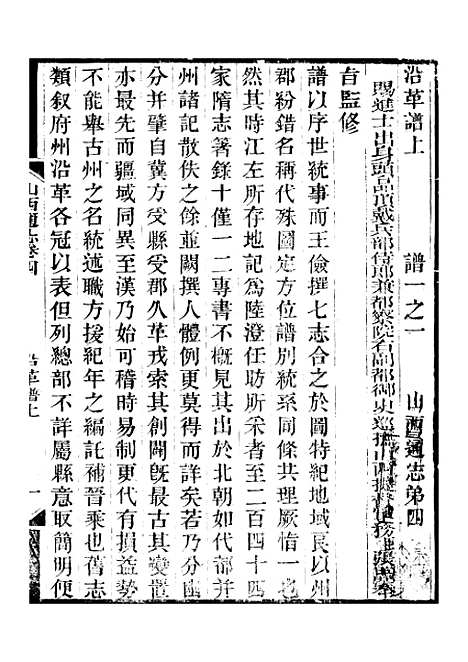 沿革譜上　譜一之一　山西通志第四
賜進士出身頭品頂戴兵部侍郎兼都察院右副都御史巡撫山西提督
旨監修
譜以序世統事而王儉撰七志合之於圖特紀地域良以州
郡紛錯名稱代殊國定方位譜別統系同條共理厥恉一也
然其時江左所存地記爲陸澄任昉所采者至二百四十四
家隋志箸錄十僅一二專書不槪見其出於北朝如代都并
州諸記散佚之餘並闕撰人體例更莫得而詳矣若乃分幽
分并肇自冀方爰縣爰郡久革戎索其創闢旣最古其變置
亦最先而疆域同異至漢乃始可稽時易制更代有損益勢
不能舉古州之名統述職方援紀年之編託補晉乘也舊志
類叙府州沿革各冠以表但列總部不詳屬縣意取簡明便
山西通志卷四　沿革譜上　一